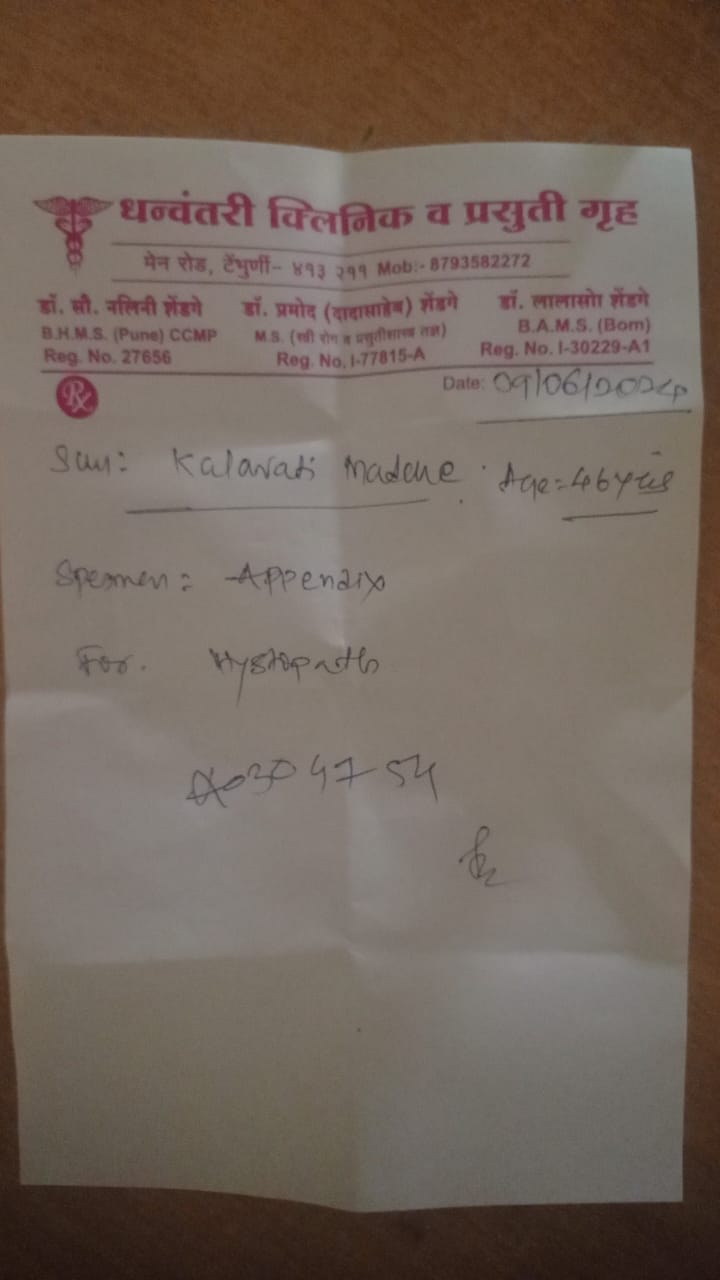 धन्वंतरी क्लिनिक व प्रसुती गृह
मेन रोड, टेंभुर्णी- ४१३ २११ Mob:- 8793582272
डॉ. सौ. नलिनी शेंडगे डॉ. प्रमोद (दादासाहेब) शेंडगे डॉ. लालासो शेंडगे
B.H.M.S. (Pune) CCMP M.S. (स्त्री रोग व प्रसुतीशास्त्र तज्ञ) B.A.M.S. (Bom)
Reg. No. 27656 Reg. No. I-77815-A Reg. No. I-30229-A1
Rx Date: 09/06/2024
Kalavati Age = 46
Specimen: Appendix
For. Hystopath